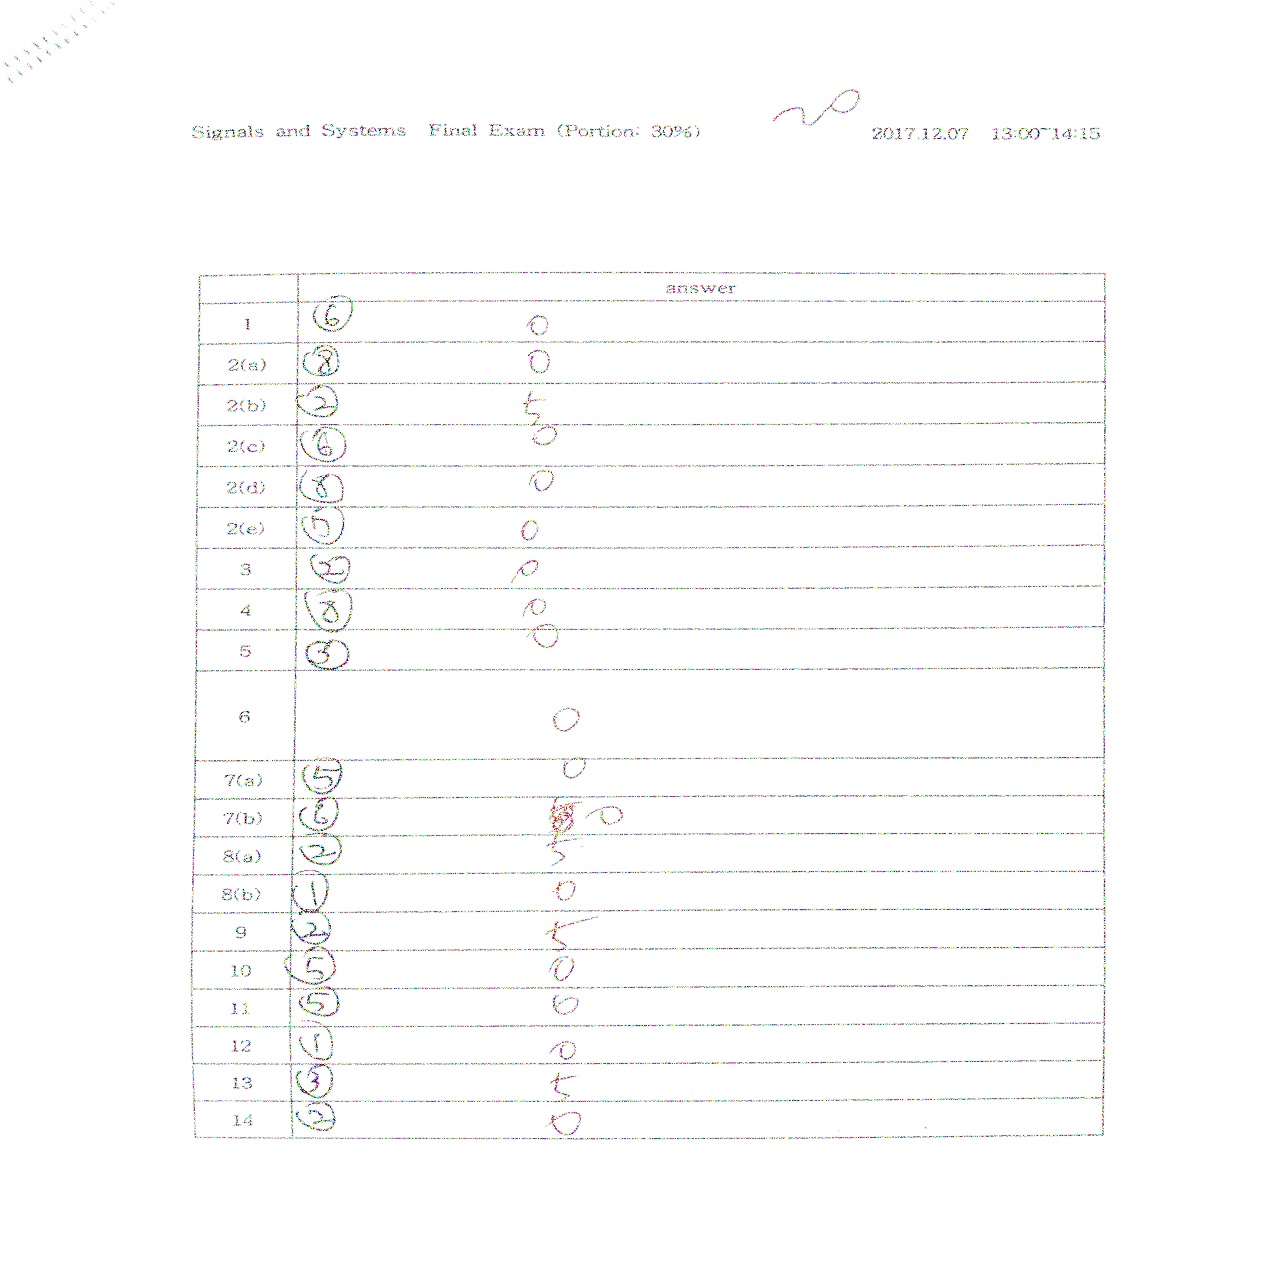 Signals and Systems Final Exam (Portion: 30%) 20 2017.12.07 13:00~14:15
answer
1 ⑥ 0
2(a) ⑧ 0
2(b) ② 5
2(c) ⑥ 0
2(d) ⑧ 0
2(e) ⑤ 0
3 ② 0
4 ⑧ 0
5 ③ 0
6 0
7(a) ⑤ 0
7(b) ⑥ 0
8(a) ② 5
8(b) ① 0
9 ② 5
10 ⑤ 0
11 ⑤ 0
12 ① 0
13 ③ 5
14 ② 0